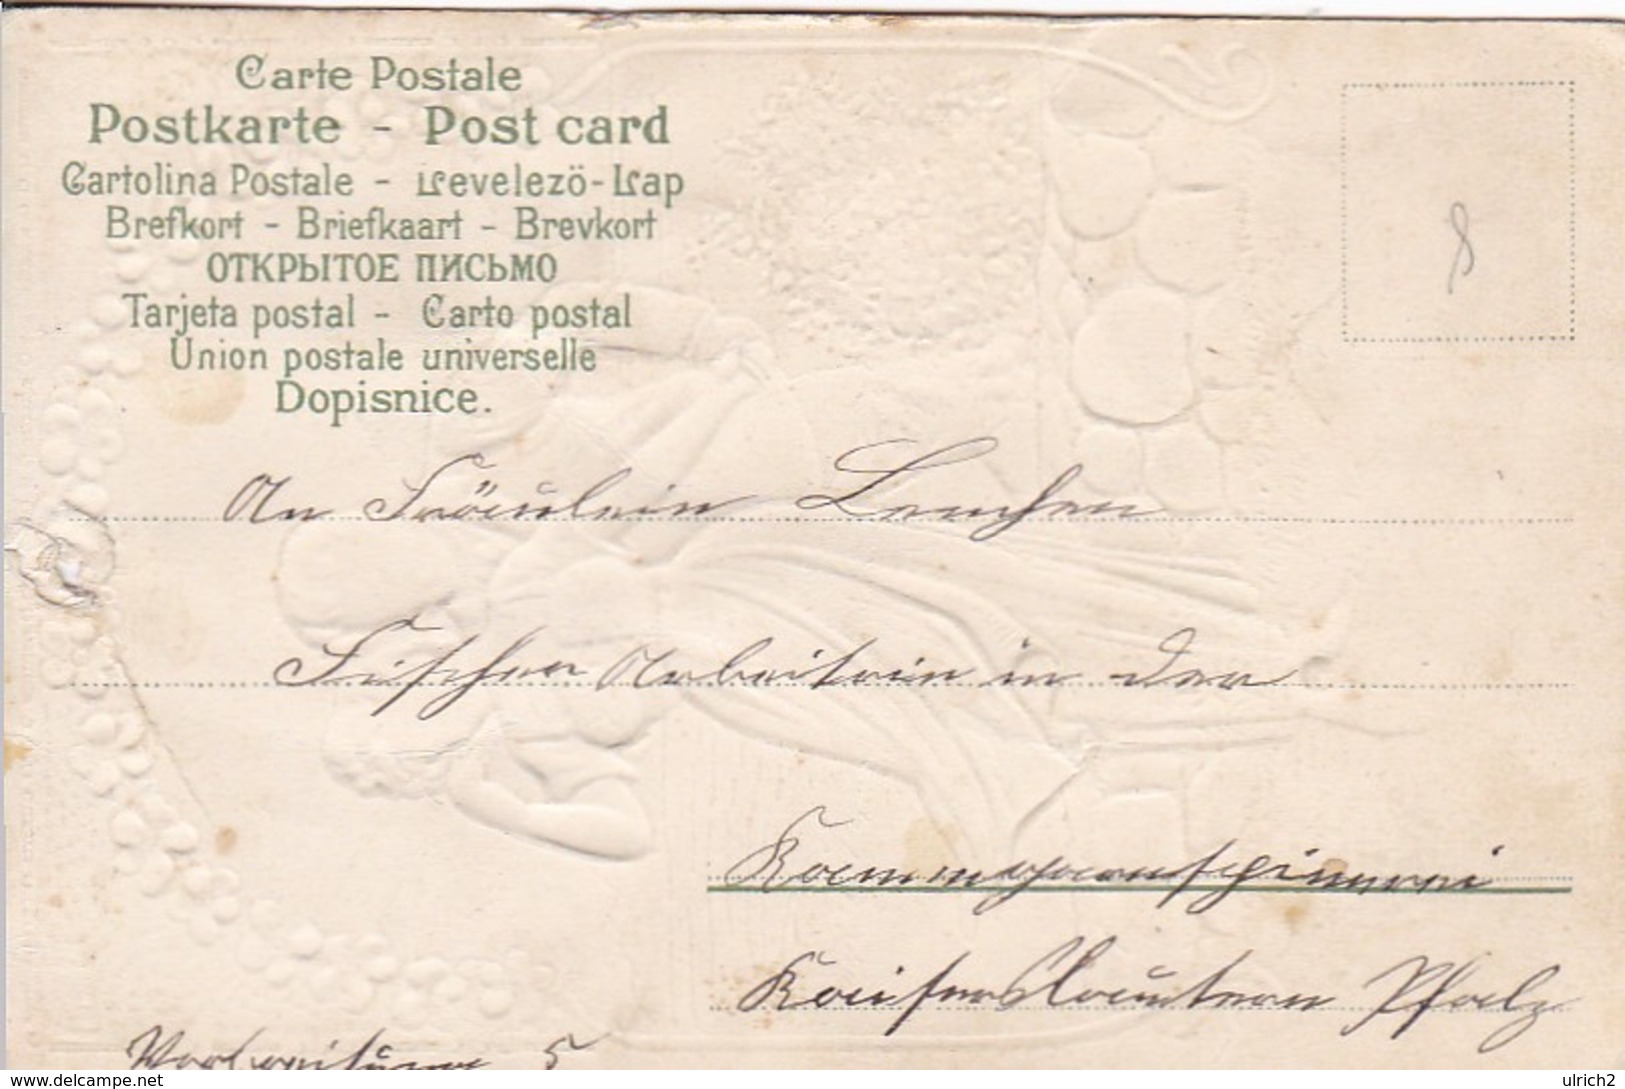 Carte Postale
Postkarte - Post card
Cartolina Postale - Levelezö-Lap
Brefkort - Briefkaart - Brevkort
ОТКРЫТОЕ ПИСЬМО
Tarjeta postal - Carto postal
Union postale universelle
Dopisnice.
8
An Fräulein Lenchen
Fischer Arbeiterin in der
Kammgarnspinnerei
Kaiserslautern Pfalz
5
delcampe.net
ulrich2